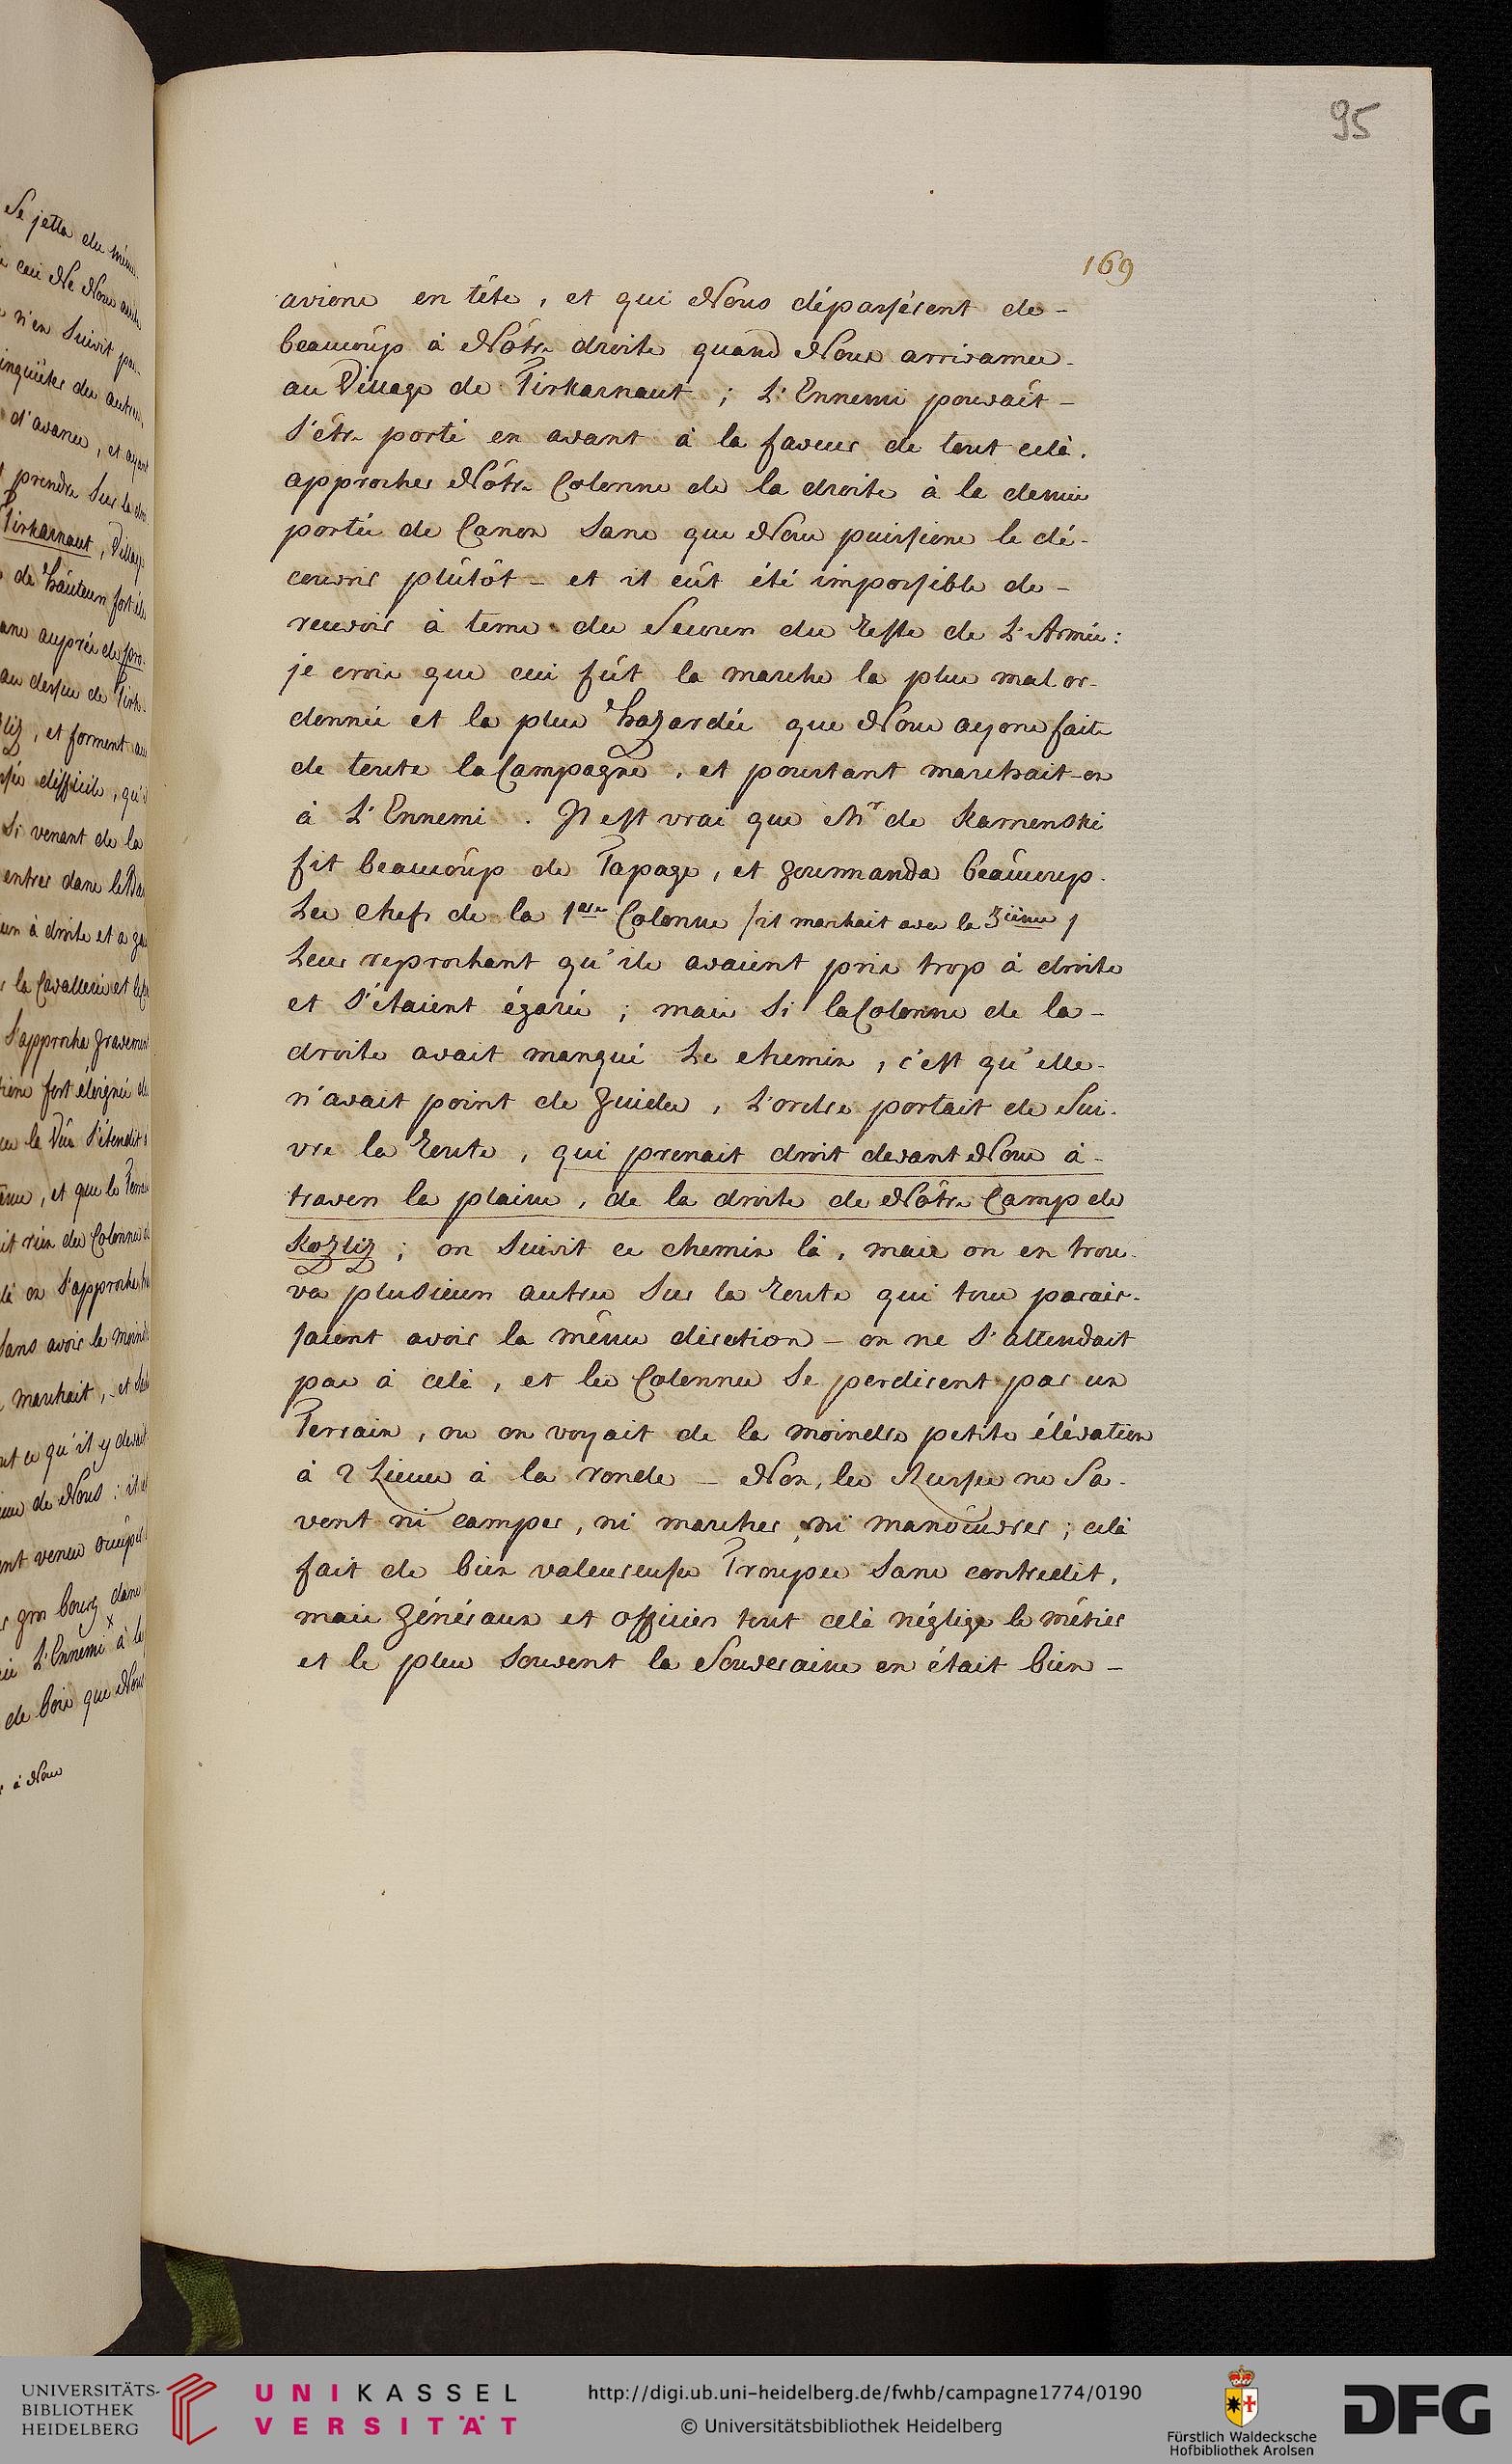 95
169
avions en tête, et qui Nous dépassèrent de-
beaucoûp à Nôtre droite quand Nous arrivames-
au Village de Tirkarnaut ; L'Ennemi pouvait-
S'être porté en avant à la faveur de tout celà,
approcher Nôtre Colonne de la droite à la demie
portée de Canon Sans que Nous puissions le dé-
couvrir plûtôt - et il eût été impossible de-
recevoir à tems du Secours du Reste de L'Armée:
je crois que ceci fût la marche la plus mal or-
donnée et la plus hazardée que Nous ayons faite
de toute la Campagne, et pourtant marchait-on
à L'Ennemi. Il est vrai que Mr de Kamenski
fit beaucoûp de Tapage, et gourmanda beaûcoup-
Les chefs de la 1ere Colonne /: il marchait avec la 3ieme /
Leur reprochant qu'ils avaient pris trop à droite
et S'étaient égarés ; mais Si la Colonne de la-
droite avait manqué Le chemin, c'est qu'elle-
n'avait point de guides, L'ordre portait de Sui-
vre la Route, qui prenait droit devant Nous à-
travers la plaine, de la droite de Nôtre Camp de
Kozliz ; on Suivit ce chemin là, mais on en trou-
va plusieurs autres Sur la Route qui tous parais-
saient avoir la même direction - on ne S'attendait
pas à celà, et les Colonnes Se perdirent par un
Terrain, ou on voyait de la moindre petite élévation
à 2 Lieues à la ronde - Non, les Russes ne Sa-
vent ni camper, ni marcher, ni manoeuvrer ; celà
fait de bien valeureuses Troupes Sans contredit,
mais Généraux et officiers tout celà néglige le métier
et le plus Souvent la Souveraine en était bien-
Se jetta
n'en Suivit
d'avance, et ayant
prendre Sur la
Tirkarnaut, Village
de hauteurs
, et forment
difficile, qu'
Si venant de la
entrer dans
à droite et à
la Cavallerie et
S'approcha gravement
fort éloignés
S'étendit
, et que le
on S'approcha
Sans avoir la moindre
marchait, et
ce qu'il y
de Nous : il
gros bourg dans
L'Ennemi x à
de bois que Nous
à Nous
UNIVERSITÄTS-
BIBLIOTHEK
HEIDELBERG
UNIKASSEL
VERSITÄT
http://digi.ub.uni-heidelberg.de/fwhb/campagne1774/0190
© Universitätsbibliothek Heidelberg
Fürstlich Waldecksche
Hofbibliothek Arolsen
DFG